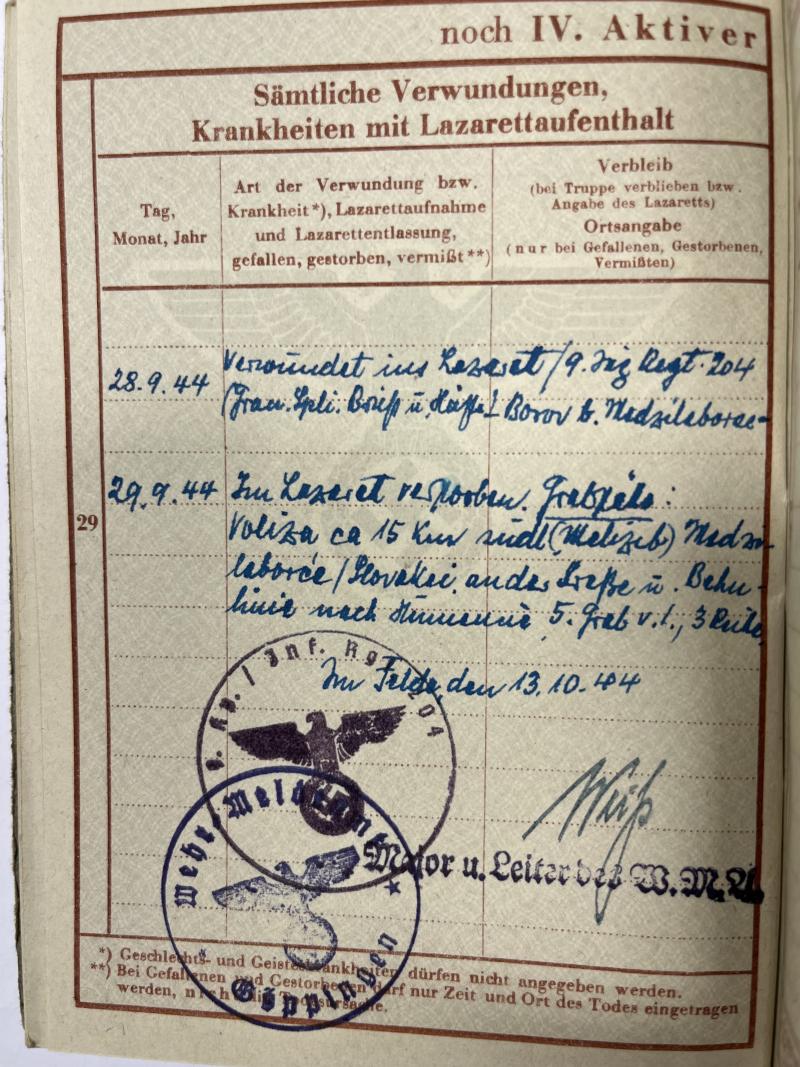 noch IV. Aktiver
Sämtliche Verwundungen,
Krankheiten mit Lazarettaufenthalt
Tag,
Monat, Jahr
Art der Verwundung bzw.
Krankheit*), Lazarettaufnahme
und Lazarettentlassung,
gefallen, gestorben, vermißt**)
Verbleib
(bei Truppe verblieben bzw.
Angabe des Lazaretts)
Ortsangabe
(nur bei Gefallenen, Gestorbenen,
Vermißten)
28.9.44
Verwundet ins Lazarett / 9. Jäg Regt. 204
(Gran. Spli. Brust u. Hüfte) Borov b. Medzilaborce
29
29.9.44
Im Lazaret verstorben.
Voliza ca 15 Km südl Medzi-
laborce / Slovakei, an der Straße u. Bahn-
linie nach Humenne, 5. Grab v.l., 3 Reihe,
Im Felde, den 13.10.44
Kp. / Inf. Rgt. 204
Wehr-Meldeamt
Göppingen
Major u. Leiter des W.M.A.
*) Geschlechts- und Geisteskrankheiten dürfen nicht angegeben werden.
**) Bei Gefallenen und Gestorbenen darf nur Zeit und Ort des Todes eingetragen
werden, nicht die Todesursache.